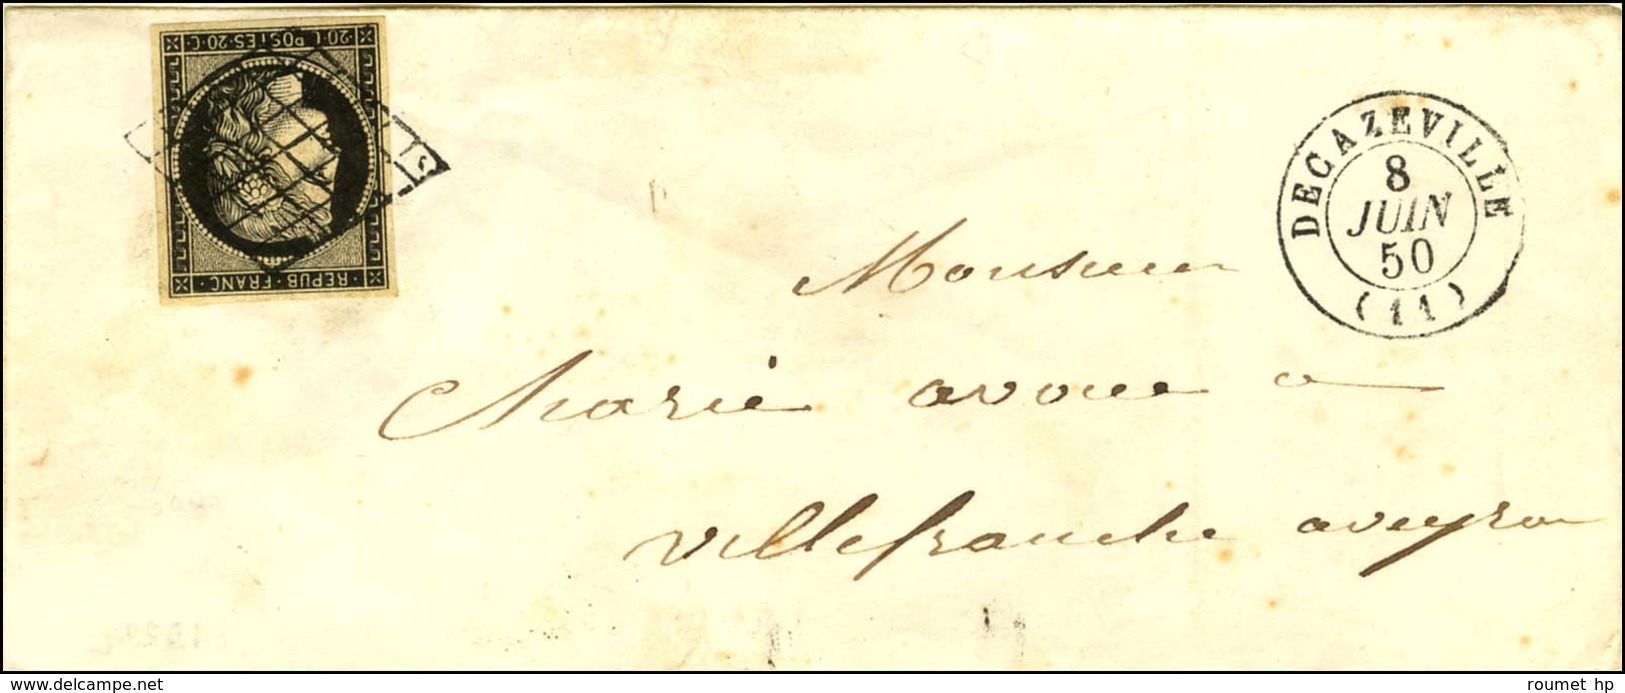 20·C·POSTES·20·C·
·REPUB·FRANC·
DECAZEVILLE
8
JUIN
50
(11)
Monsieur
Marie avoué a
Villefranche aveyron
www.delcampe.net
roumet hp